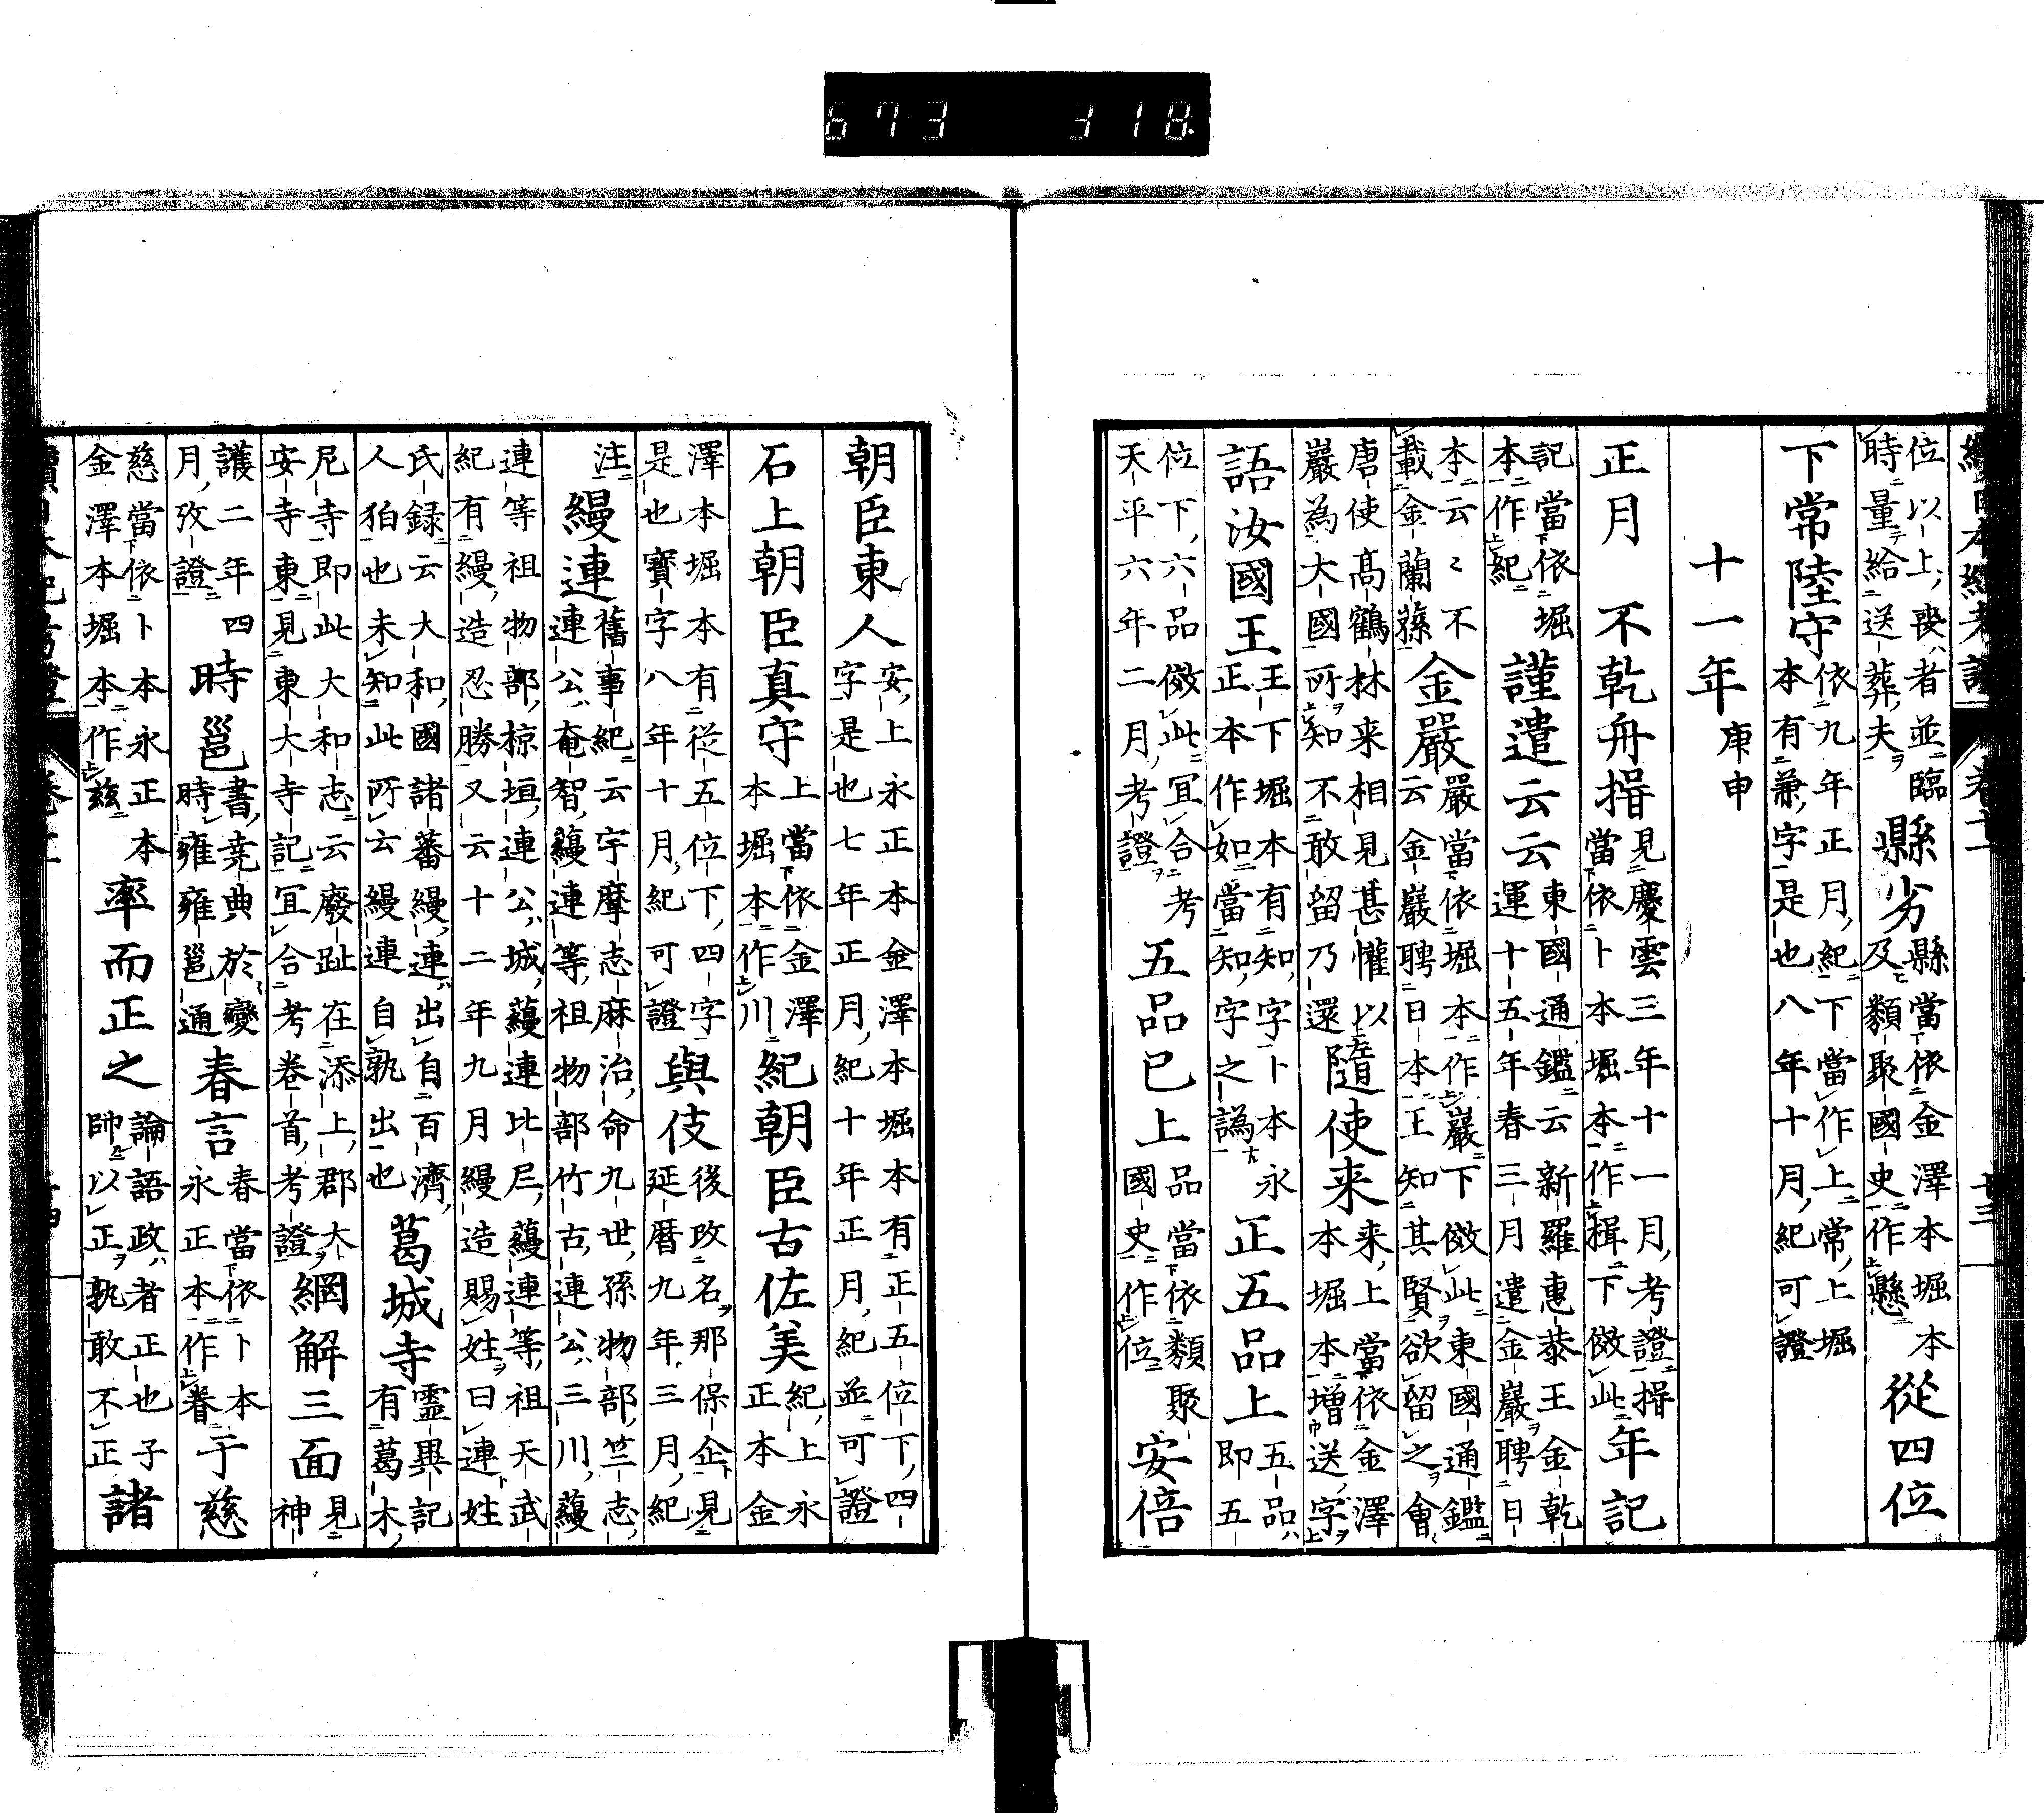 673 318.
續日本紀考證 卷十一 十三
位以上喪者並臨時量給送葬夫縣劣縣當依金澤本堀本及類聚國史作懸從四位
下常陸守依九年正月紀下當作上常上堀本有兼字是也八年十月紀可證
十一年庚申
正月 不乾舟揖見慶雲三年十一月考證揖當依卜本堀本作楫下傚此年記
記當依堀本作紀謹遣云云東國通鑑云新羅惠恭王金乾運十五年春三月遣金巖聘日
本云〻不載金蘭蓀金嚴嚴當依堀本作巖下傚此東國通鑑云金巖聘日本王知其賢欲留之會
唐使高鶴林来相見甚懽以巖為大國所知不敢留乃還隨使来来上當依金澤本堀本增送字
語汝國王王下堀本有知字卜本永正本作如當知字之譌正五品上五品即五
位下六品傚此宜合考天平六年二月考證五品已上品當依類聚國史作位安倍
朝臣東人安上永正本金澤本堀本有正五位下四字是也七年正月紀十年正月紀並可證
石上朝臣真守上當依金澤本堀本作川紀朝臣古佐美紀上永正本金
澤本堀本有從五位下四字是也寶字八年十月紀可證與伎後改名那保企見延暦九年三月紀
注縵連舊事紀云宇摩志麻治命九世孫物部竺志連公奄智蘰連等祖物部竹古連公三川蘰
連等祖物部椋垣連公城蘰連比尼蘰連等祖天武紀有縵造忍勝又云十二年九月縵造賜姓曰連姓
氏録云大和國諸蕃縵連出自百濟人狛也未知此所云縵連自孰出也葛城寺靈異記有葛木
尼寺即此大和志云廢趾在添上郡大安寺東見東大寺記宜合考卷首考證網解三面見神
護二年四月攷證時邕書堯典於變時雍雍邕通春言春當依卜本永正本作眷于慈
慈當依卜本永正本金澤本堀本作茲率而正之論語政者正也子帥以正孰敢不正諸